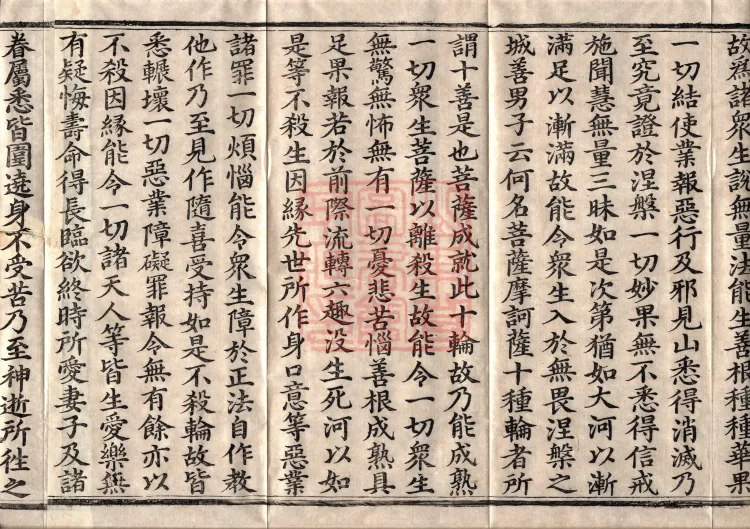 故爲諸衆生説無量法能生善根種種華果
一切結使業報惡行及邪見山悉得消滅乃
至究竟證於涅槃一切妙果無不悉得信戒
施聞慧無量三昧如是次第猶如大河以漸
滿足以漸滿故能令衆生入於無畏涅槃之
城善男子云何名菩薩摩訶薩十種輪者所
謂十善是也菩薩成就此十輪故乃能成熟
一切衆生菩薩以離殺生故能令一切衆生
無驚無怖無有一切憂悲苦惱善根成熟具
足果報若於前際流轉六趣没生死河以如
是等不殺生因緣先世所作身口意等惡業
諸罪一切煩惱能令衆生障於正法自作教
他作乃至見作隨喜受持如是不殺輪故皆
悉輾壞一切惡業障礙罪報令無有餘亦以
不殺因緣能令一切諸天人等皆生愛樂無
有疑悔壽命得長臨欲終時所愛妻子及諸
眷屬悉皆圍遶身不受苦乃至神逝所徃之